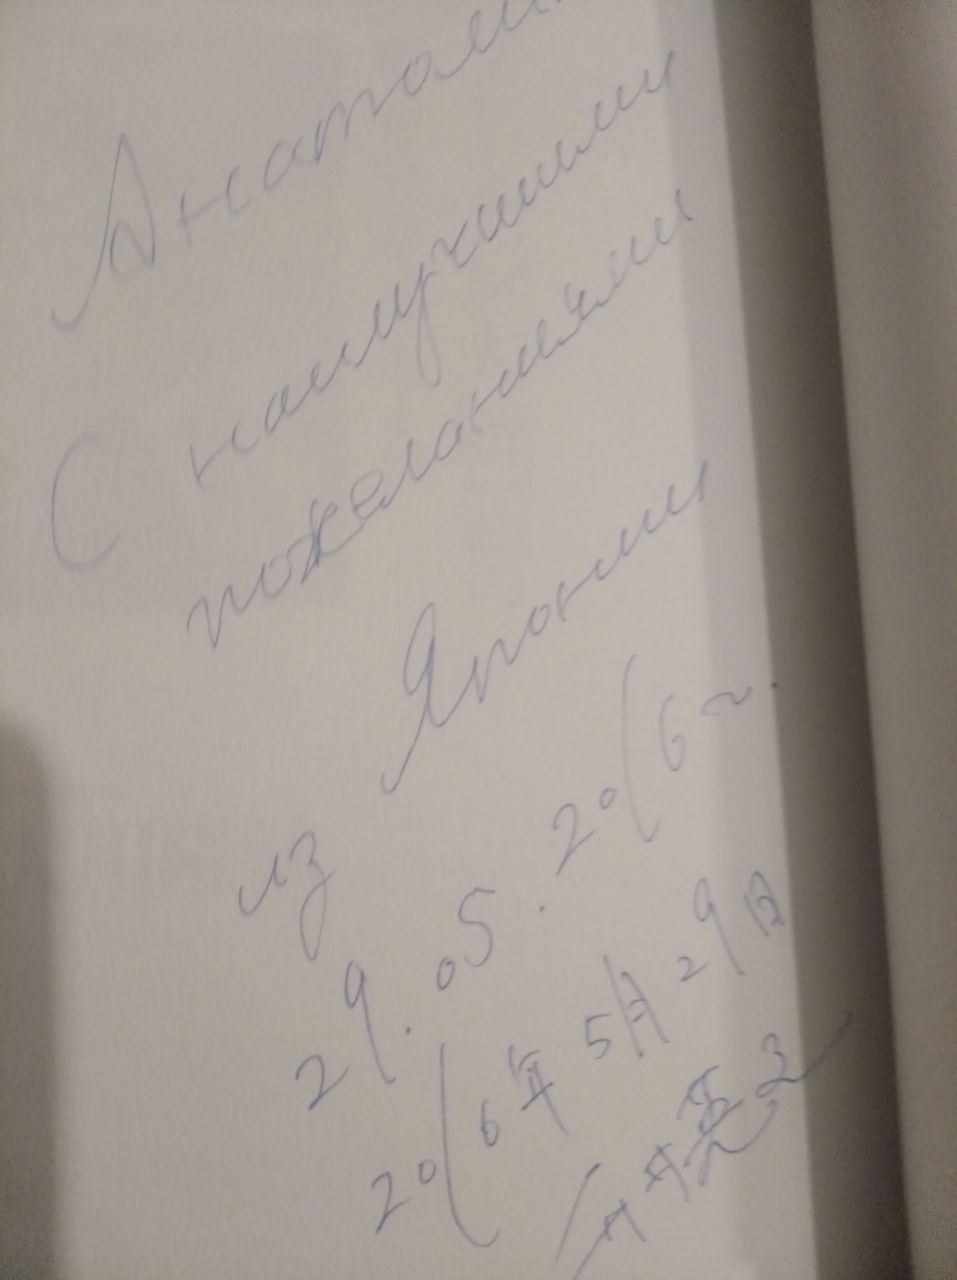 Анатоли
С наилучшими
пожеланиями
из Японии
29.05.2016 г.
2016年5月29日